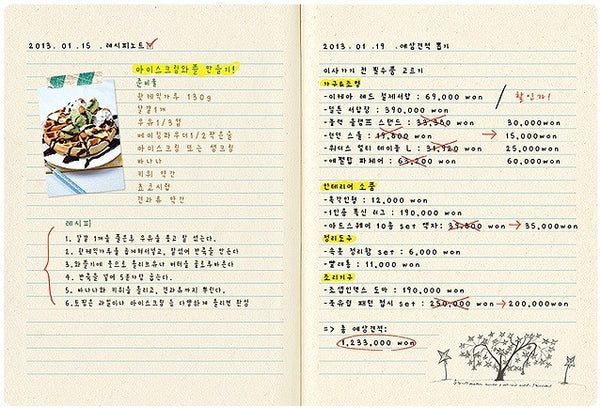 2013. 01. 15 . 레시피노트
아이스크림와플 만들기!
준비물
핫케익가루 130g
달걀1개
우유1/3컵
베이킹파우더1/2작은술
아이스크림 또는 생크림
바나나
키위 약간
초코시럽
견과류 약간
레시피
1. 달걀 1개를 풀은후 우유를 붓고 잘 섞는다.
2. 핫케익가루를 곱게하여넣고, 잘섞어 반죽을 만든다
3. 와플기에 붓으로 올리브유나 버터를 골고루바른다
4. 반죽을 넣어 5분가량 굽는다.
5. 바나나와 키위를 올리고, 견과류까지 뿌린다.
6. 토핑은 과일이나 아이스크림 등 다양하게 올리면 완성
2013. 01. 19 .예상견적 뽑기
이사가기 전 필수품 고르기
가구&조명
할인가!
-이케아 레드 철제서랍 : 69,000 won
-월든 서랍장 : 390,000 won
-블랙 클램프 스탠드 : 33,350 30,000won
-인연 스툴 : 17,000 → 15,000won
-위더스 멀티 테이블 L : 31,920 25,000won
-에펠팁 파체어 : 63,200 60,000won
인테리어 소품
-목각인형 : 12,000 won
-1인용 북신 러그 : 190,000 won
-아트스케어 10종 set 액자: 37,800 won → 35,000won
정리도구
-속옷 정리함 set : 6,000 won
-빨래통 : 11,000 won
조리기구
-조셉인덱스 도마 : 190,000 won
-북유럽 패턴 접시 set : 250,000 won → 200,000won
=> 총 예상견적:
1,233,000 won